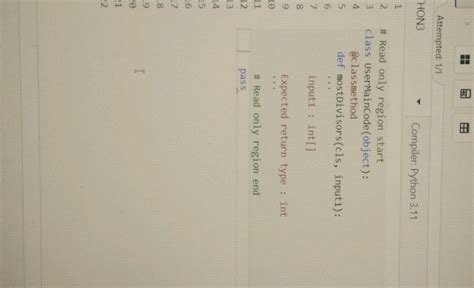 Attempted: 1/1
THON3
Compiler: Python 3.11
1
2 # Read only region start
3 class UserMainCode(object):
4 @classmethod
5 def mostDivisors(cls, input1):
6 '''
7 input1 : int[]
8
9 Expected return type : int
10 '''
11 # Read only region end
12 pass
13
14
15
16
17
18
19
20
21
22